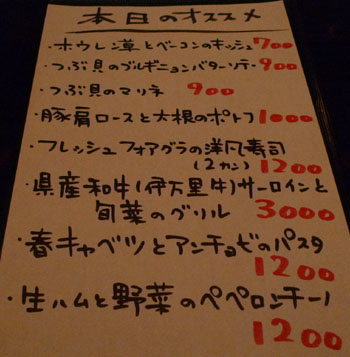 本日のオススメ
・ホウレン草とベーコンのキッシュ 700
・つぶ貝のブルギニョンバターソテー 900
・つぶ貝のマリネ 900
・豚肩ロースと大根のポトフ 1000
・フレッシュフォアグラの洋風寿司
(2カン) 1200
・県産和牛(伊万里牛)サーロインと
旬菜のグリル 3000
・春キャベツとアンチョビのパスタ
1200
・生ハムと野菜のペペロンチーノ
1200